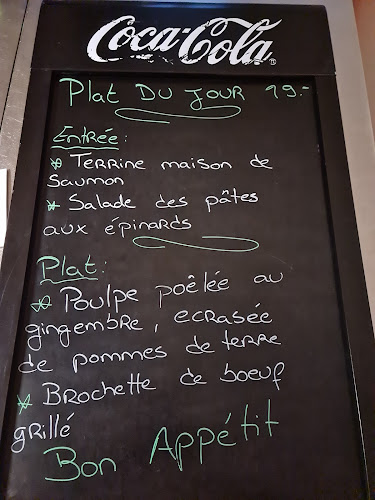 Coca-Cola
Plat Du Jour 19.-
Entrée:
* Terrine maison de
saumon
* Salade des pâtes
aux épinards
Plat:
* Poulpe poêlée au
gingembre, ecrasée
de pommes de terre
* Brochette de boeuf
grillé
Bon Appétit